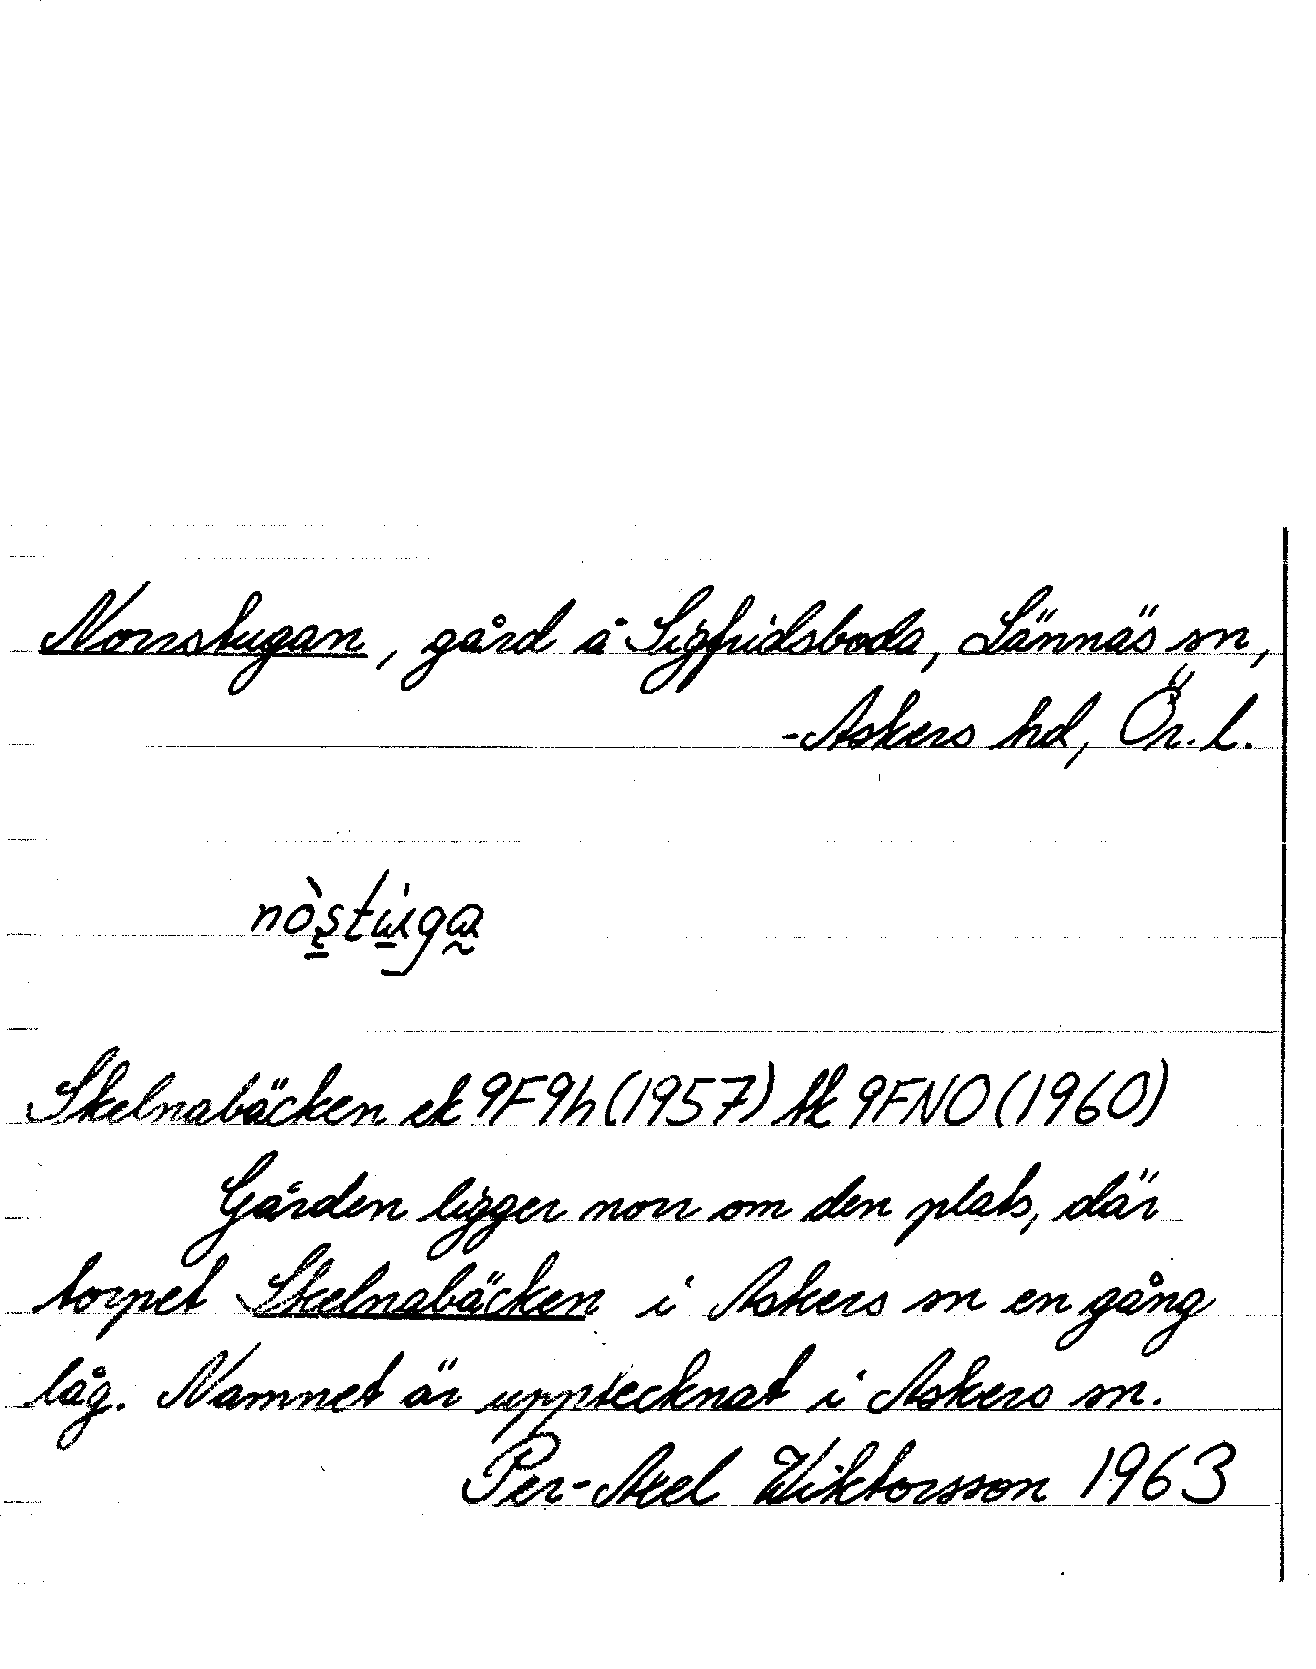 Norrstugan, gård å Sigfridsboda, Lännäs sn,
Askers hd, Ör. l.
nòstu̇ga
Skelnabäcken ek 9F9h (1957) tk 9FNO (1960)
Gården ligger norr om den plats, där
torpet Skelnabäcken i Askers sn en gång
låg. Namnet är upptecknat i Askers sn.
Per-Axel Wiktorsson 1963